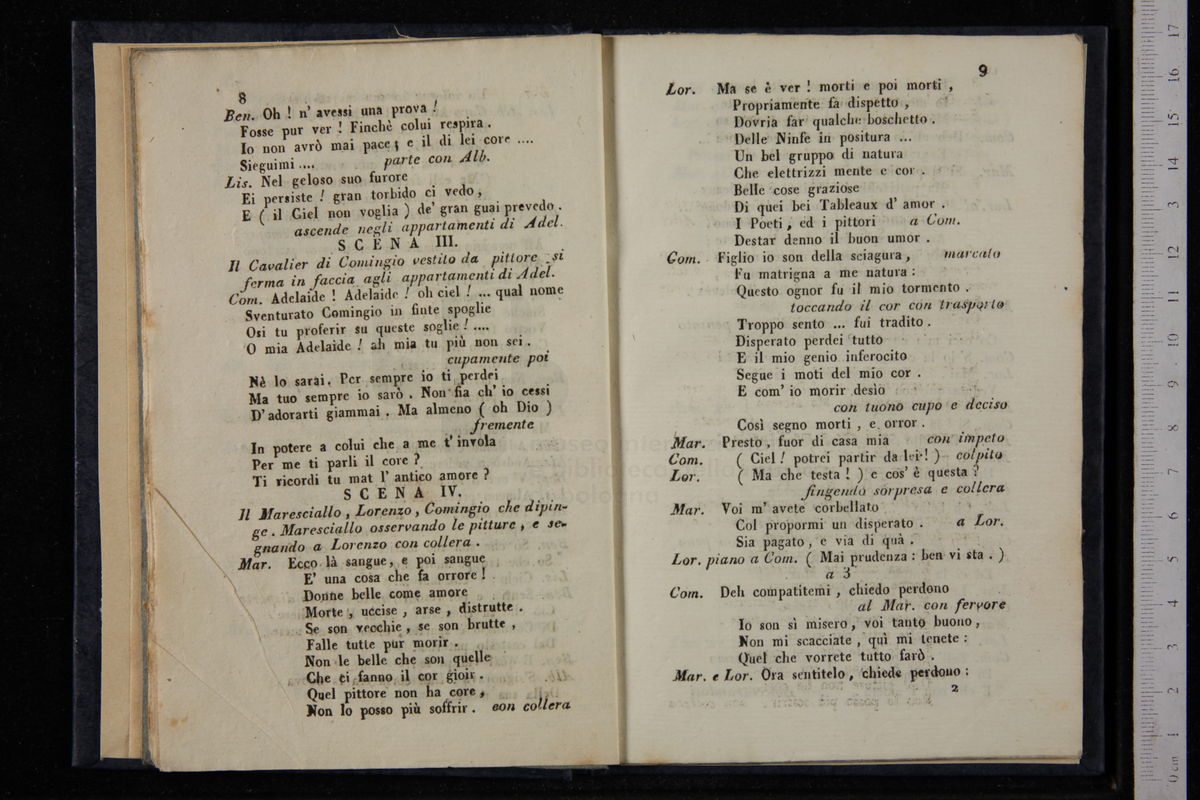 8
Ben. Oh ! n' avessi una prova !
Fosse pur ver ! Finchè colui respira .
Io non avrò mai pace ; e il di lei core ....
Sieguimi .... parte con Alb.
Lis. Nel geloso suo furore
Ei persiste ! gran torbido ci vedo ,
E ( il Ciel non voglia ) de' gran guai prevedo .
ascende negli appartamenti di Adel.
SCENA III.
Il Cavalier di Comingio vestito da pittore si
ferma in faccia agli appartamenti di Adel.
Com. Adelaide ! Adelaide ! oh ciel ! ... qual nome
Sventurato Comingio in finte spoglie
Osi tu proferir su queste soglie ! ....
O mia Adelaide ! ah mia tu più non sei .
cupamente poi
Nè lo sarai. Per sempre io ti perdei
Ma tuo sempre io sarò . Non fia ch' io cessi
D' adorarti giammai . Ma almeno ( oh Dio )
fremente
In potere a colui che a me t' invola
Per me ti parli il core ?
Ti ricordi tu mat l' antico amore ?
SCENA IV.
Il Maresciallo , Lorenzo , Comingio che dipin-
ge . Maresciallo osservando le pitture , e se-
gnando a Lorenzo con collera .
Mar. Ecco là sangue, e poi sangue
E' una cosa che fa orrore !
Donne belle come amore
Morte , uccise , arse , distrutte .
Se son vecchie , se son brutte ,
Falle tutte pur morir .
Non le belle che son quelle
Che ti fanno il cor gioir .
Quel pittore non ha core ,
Non lo posso più soffrir . con collera
9
Lor. Ma se è ver ! morti e poi morti ,
Propriamente fa dispetto ,
Dovria far qualche boschetto .
Delle Ninfe in positura ...
Un bel gruppo di natura
Che elettrizzi mente e cor .
Belle cose graziose
Di quei bei Tableaux d' amor .
I Poeti , ed i pittori a Com.
Destar denno il buon umor .
Com. Figlio io son della sciagura , marcato
Fu matrigna a me natura :
Questo ognor fu il mio tormento .
toccando il cor con trasporto
Troppo sento ... fui tradito .
Disperato perdei tutto
E il mio genio inferocito
Segue i moti del mio cor .
E com' io morir desìo
con tuono cupo e deciso
Così segno morti , e orror .
Mar. Presto , fuor di casa mia con impeto
Com. ( Ciel ! potrei partir da lei ! ) colpito
Lor. ( Ma che testa ! ) e cos' è questa ?
fingendo sorpresa e collera
Mar. Voi m' avete corbellato
Col propormi un disperato . a Lor.
Sia pagato , e via di quà .
Lor. piano a Com. ( Mai prudenza : ben vi sta . )
a 3
Com. Deh compatitemi , chiedo perdono
al Mar. con fervore
Io son sì misero , voi tanto buono ,
Non mi scacciate , quì mi tenete :
Quel che vorrete tutto farò .
Mar. e Lor. Ora sentitelo , chiede perdono :
2